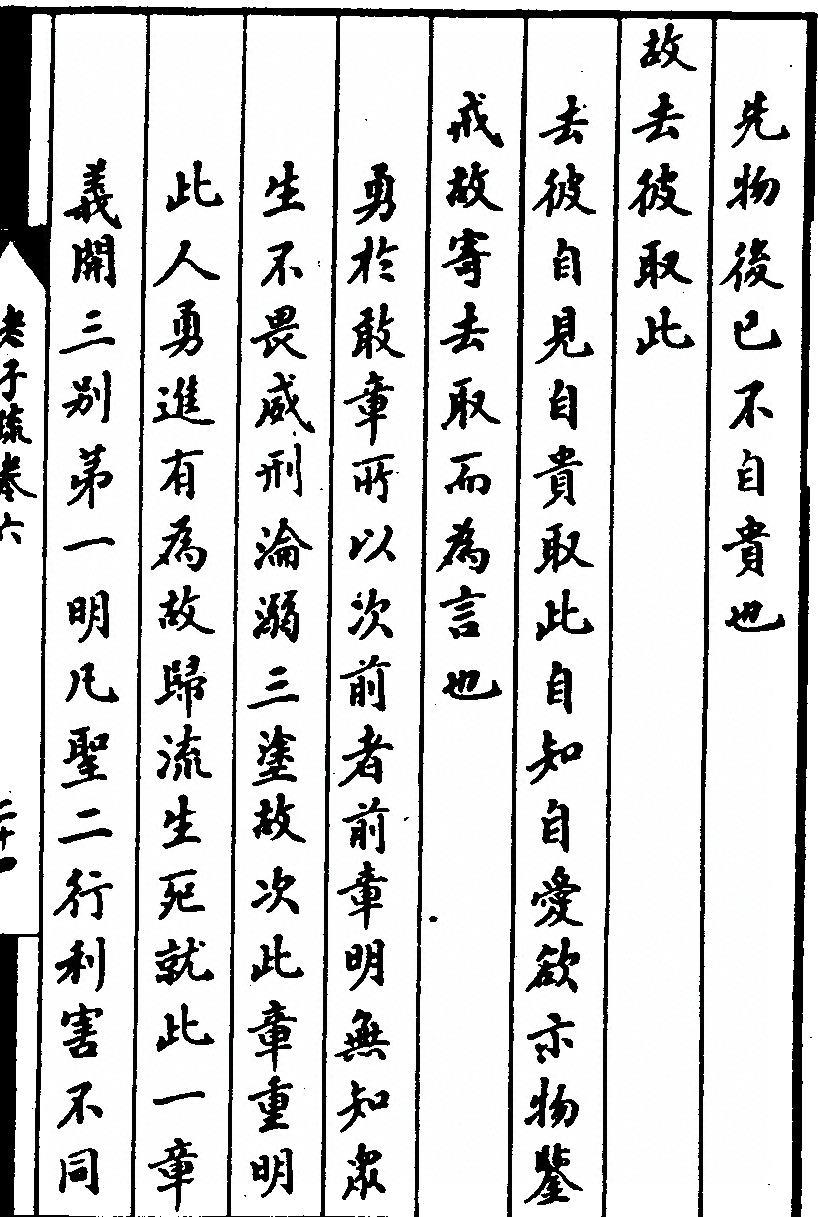 先物後已不自貴也
故去彼取此
去彼自見自貴取此自知自愛欲示物鑒
戒故寄去取而為言也
勇於敢章所以次前者前章明無知眾
生不畏威刑淪溺三塗故次此章重明
此人勇進有為故歸流生死就此一章
義開三別第一明凡聖二行利害不同
老子疏卷六
二十四